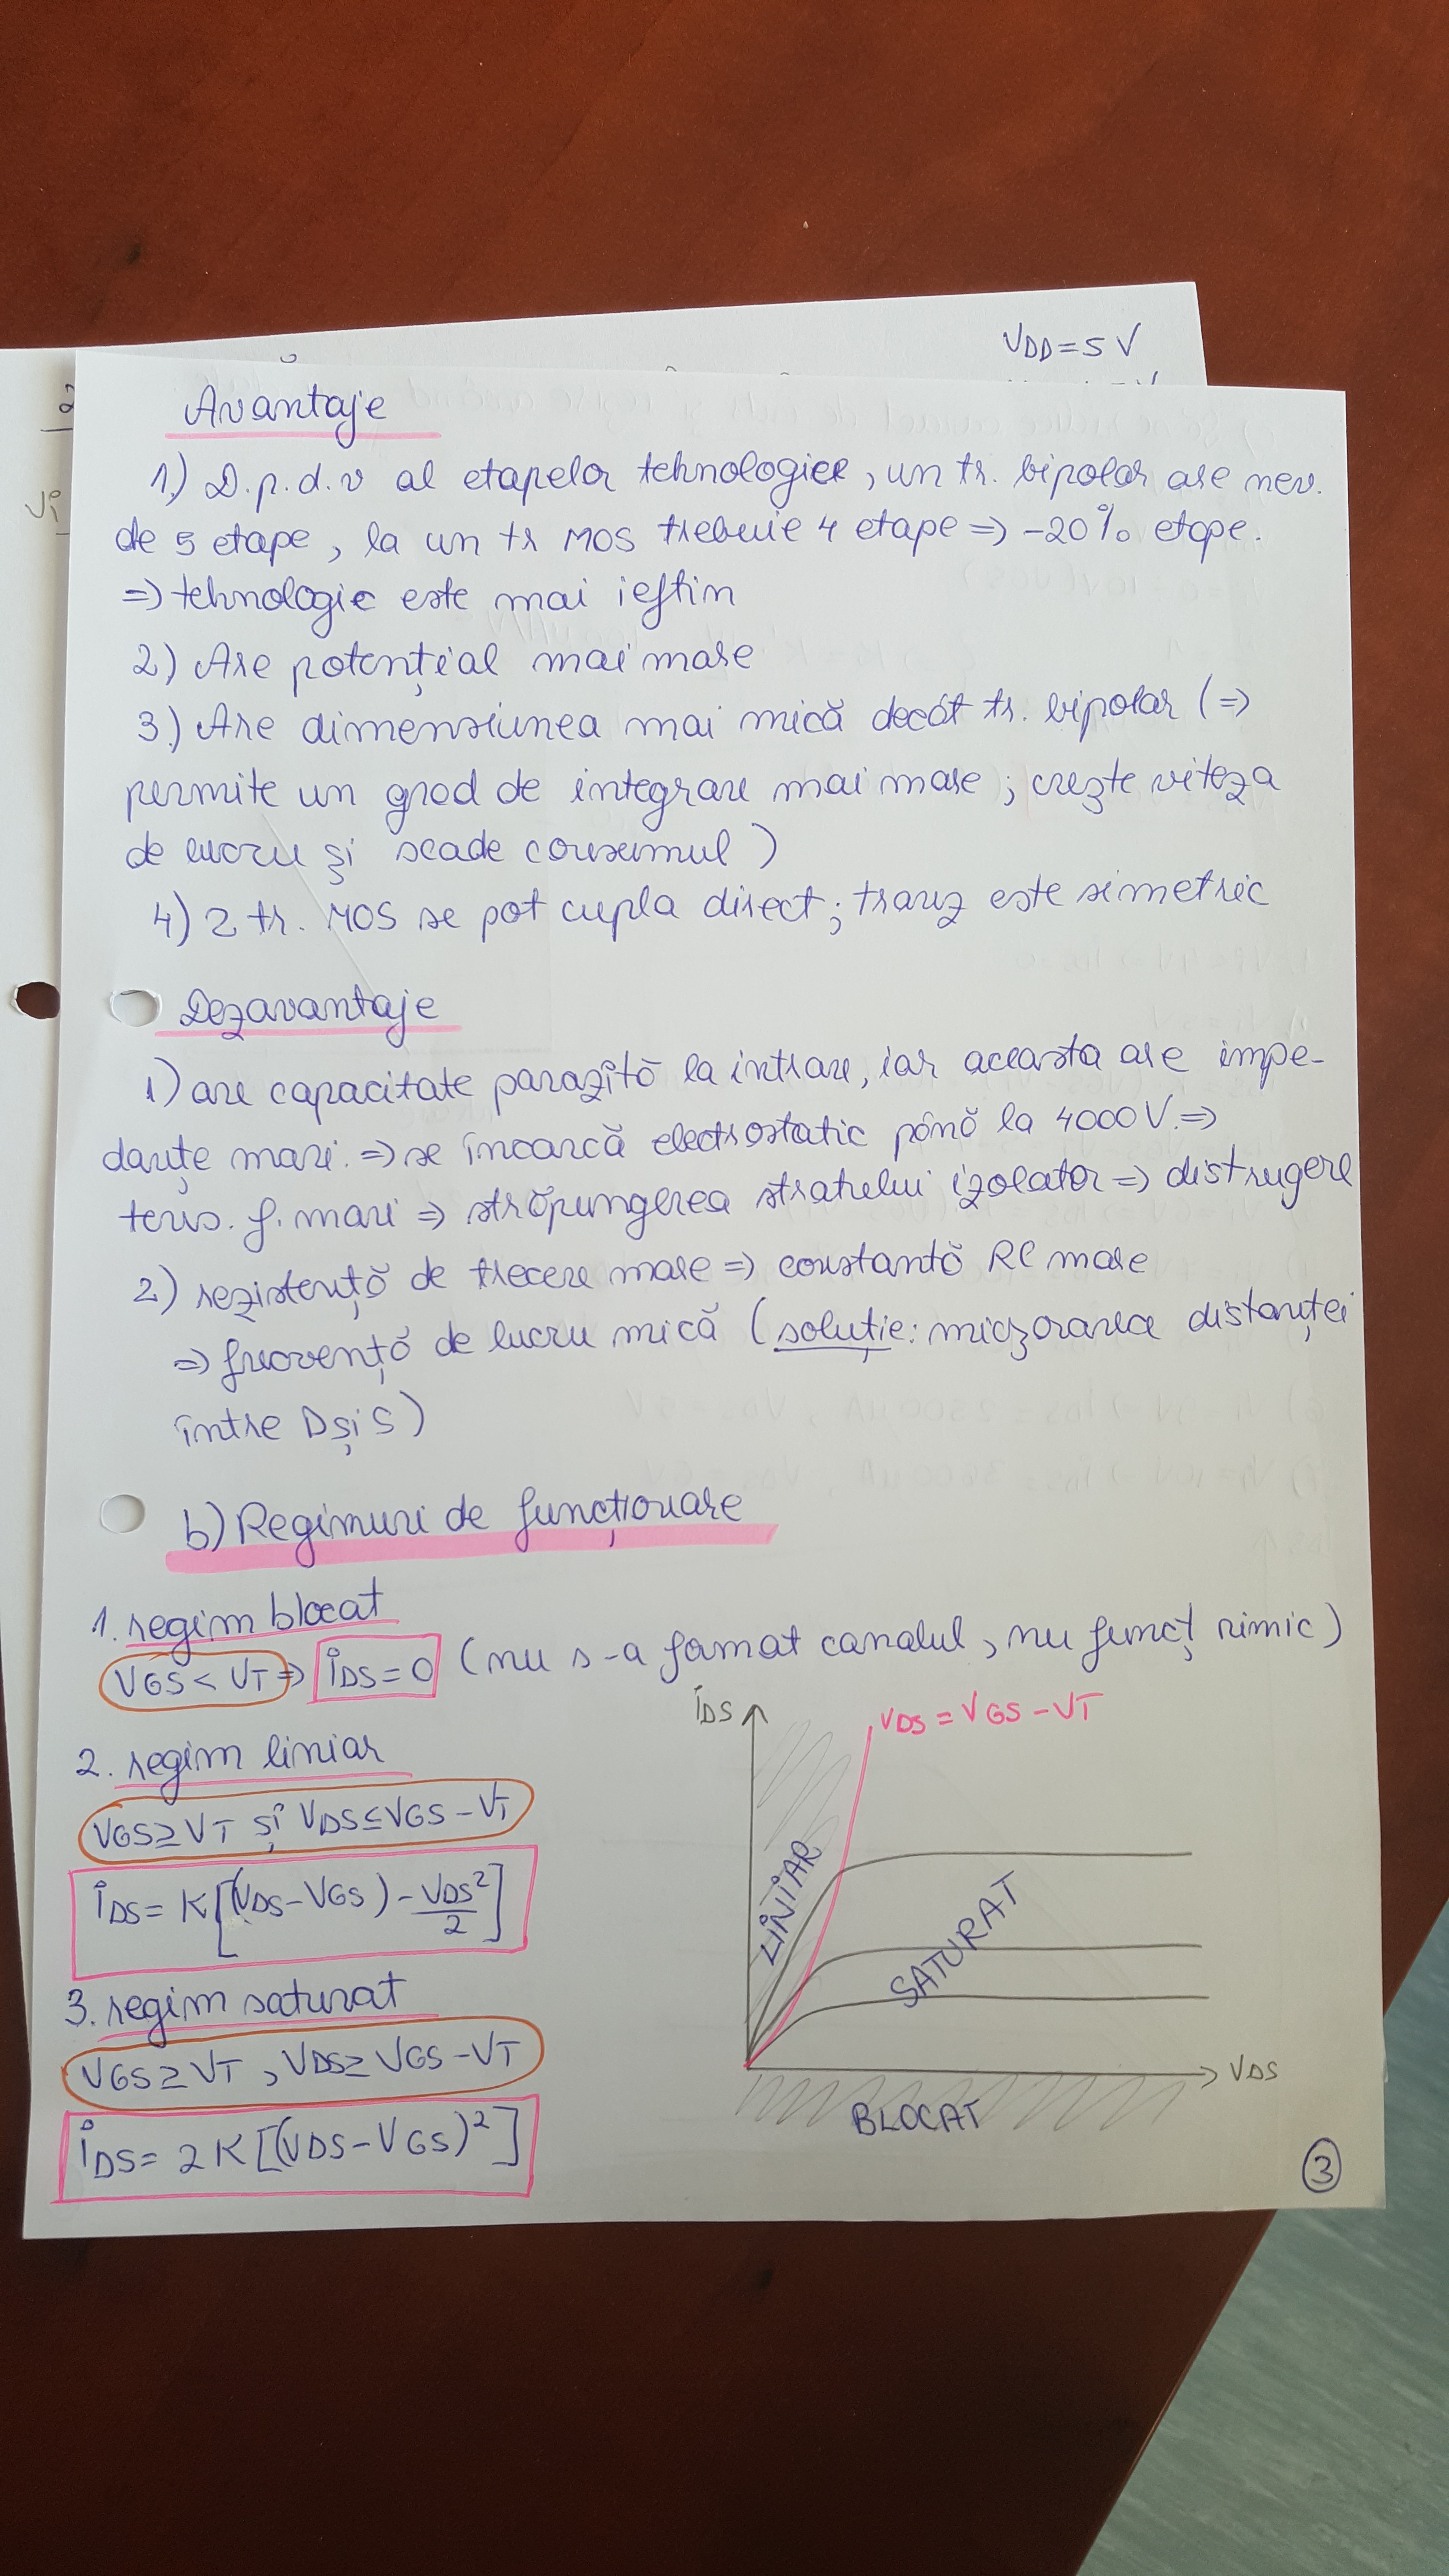 VDD=5V
Avantaje
1) D.p.d.v al etapelor tehnologice, un tr. bipolar are nev.
de 5 etape, la un tr MOS trebuie 4 etape => -20% etape.
=> tehnologic este mai ieftin
2) Are potențial mai mare
3) Are dimensiunea mai mică decât tr. bipolar (=>
permite un grad de integrare mai mare; crește viteza
de lucru și scade consumul)
4) 2 tr. MOS se pot cupla direct; tranz este simetric
Dezavantaje
1) are capacitate parazită la intrare, iar aceasta are impe-
danțe mari. => se încarcă electrostatic până la 4000V. =>
tens. f. mari => străpungerea stratului izolator => distrugere
2) rezistență de trecere mare => constantă RC mare
=> frecvență de lucru mică (soluție: micșorarea distanței
între D și S)
b) Regimuri de funcționare
1. regim blocat
VGS < VT => iDS = 0 (nu s-a format canalul, nu funcț nimic)
iDS
VDS = VGS - VT
2. regim liniar
VGS ≥ VT și VDS ≤ VGS - VT
LINIAR
iDS = K[(VDS - VGS) - VDS²/2]
SATURAT
3. regim saturat
VGS ≥ VT, VDS ≥ VGS - VT
VDS
BLOCAT
iDS = 2K[(VDS - VGS)²]
3
Vi